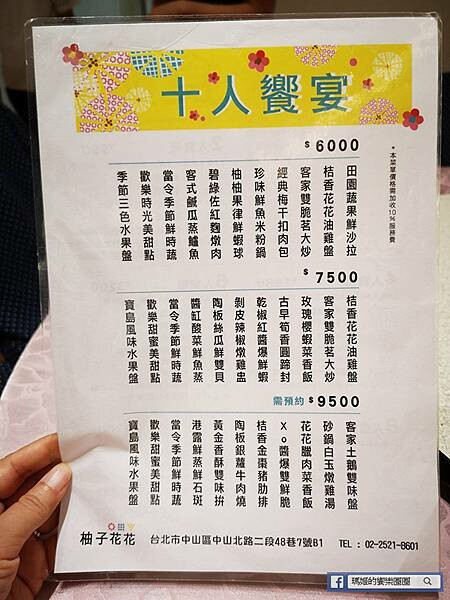 十人饗宴
$ 6000
*本菜單價格需加收10%服務費
田園蔬果鮮沙拉
桔香花花油雞盤
客家雙脆茗大炒
經典梅干扣肉包
珍味鮮魚米粉鍋
柚柚果律鮮蝦球
碧綠佐紅麴燉肉
客式鹹瓜蒸鱸魚
當令季節鮮時蔬
歡樂時光美甜點
季節三色水果盤
$ 7500
桔香花花油雞盤
客家雙脆茗大炒
玫瑰櫻蝦菜香飯
古早筍香圓蹄封
乾椒紅醬爆鮮蝦
剝皮辣椒燉雞盅
陶板絲瓜鮮雙貝
醬缸酸菜鮮魚蒸
當令季節鮮時蔬
歡樂甜蜜美甜點
寶島風味水果盤
需預約 $ 9500
客家土鵝雙味盤
砂鍋白玉燉雞湯
花花臘肉菜香飯
Xo醬爆雙鮮脆
桔香金棗豬肋排
陶板銀蘿牛肉燒
黃金香酥雙味拼
港露鮮蒸鮮石斑
當令季節鮮時蔬
歡樂甜蜜美甜點
寶島風味水果盤
柚子花花 台北市中山區中山北路二段48巷7號B1 TEL : 02-2521-6601
瑪姬的饗樂團團